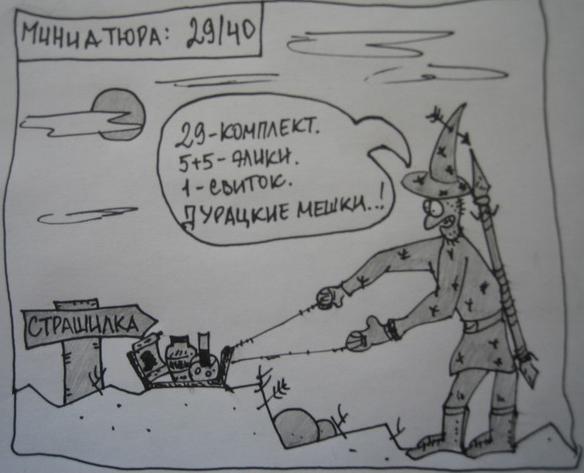 МИНИАТЮРА: 29/40
29-КОМПЛЕКТ.
5+5-ЯЛИКИ.
1-СВИТОК.
ДУРАЦКИЕ МЕШКИ..!
СТРАШИЛКА